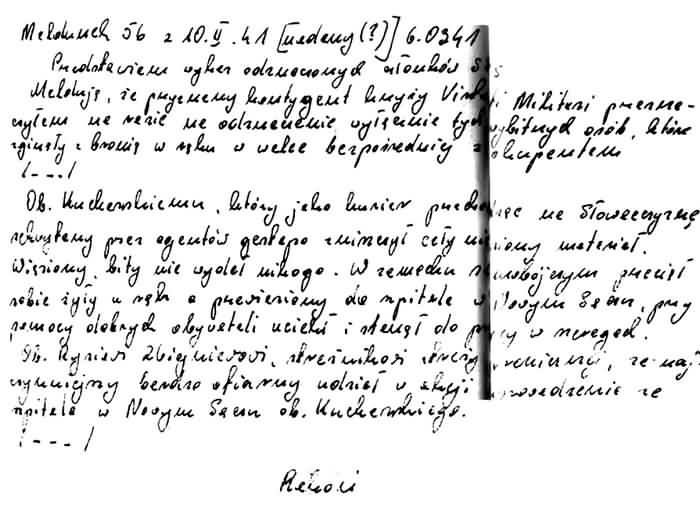 Meldunek 56 z 10.II.41 [nadany(?)] 6.0341
Przedstawiam wykaz odznaczonych członków SZS
Melduję, że przyznany kontygent krzyży Virtuti Militari przezna-
czyłem na razie na odznaczenie wyłącznie tych wybitnych osób, które
zginęły z bronią w ręku w walce bezpośredniej z okupantem
/---/
Ob. Kucharskiemu, który jako kurier przechodząc na Słowaczyznę
schwytany przez agentów gestapo zniszczył cały niesiony materiał.
Więziony, bity nie wydał nikogo. W zamachu samobójczym przeciął
sobie żyły u rąk a przewieziony do szpitala w Nowym Sączu, przy
pomocy dobrych obywateli uciekł i stanął do pracy w szeregach.
Ob. Rysiowi Zbigniewowi, strażnikowi straży granicznej, za naj-
czynniejszy bardzo ofiarny udział w akcji uprowadzenia ze
szpitala w Nowym Sączu ob. Kucharskiego.
/---/
Rakoń